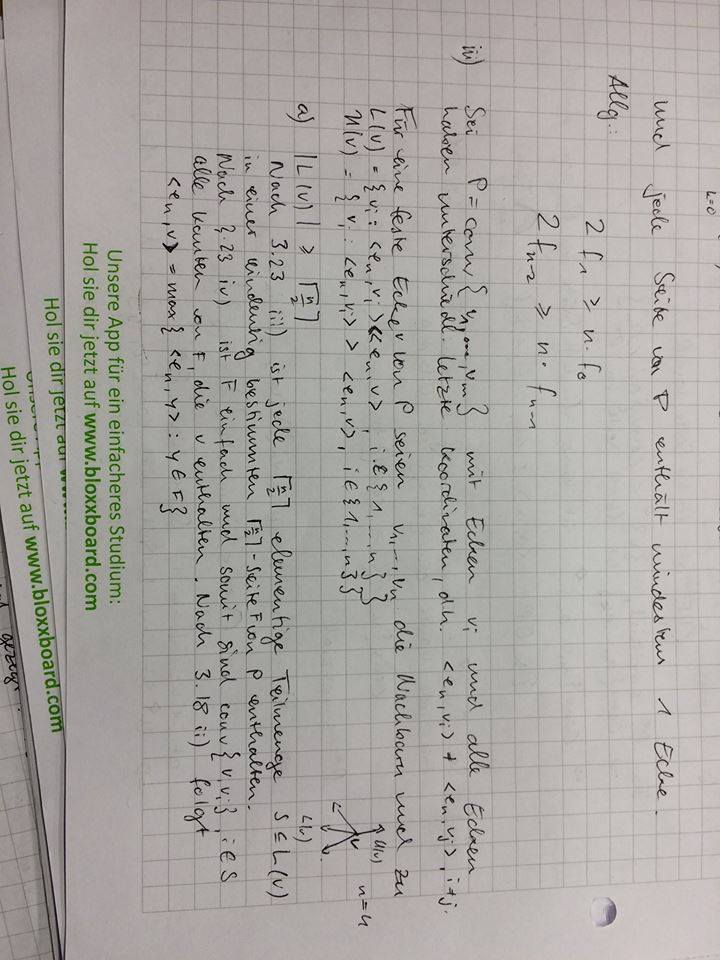 k=0
und jede Seite von P enthält mindestens 1 Ecke.
Allg.:
2 f₁ ≥ n · f₀
2 fₙ₋₂ ≥ n · fₙ₋₁
iii) Sei P = conv { v₁, ..., vₘ } mit Ecken vᵢ und alle Ecken
haben unterschiedl. letzte Koordinaten, d.h. <eₙ, vᵢ> ≠ <eₙ, vⱼ>, i≠j.
Für eine feste Ecke v von P seien v₁, .., vₙ die Nachbarn und zu
L(v) = { vᵢ : <eₙ, vᵢ> < <eₙ, v>, i ∈ {1, ..., n} }
U(v) = { vᵢ : <eₙ, vᵢ> > <eₙ, v>, i ∈ {1, ..., n} }
U(v)
v
n=4
L(v)
a) |L(v)| ≥ ⌈n/2⌉
Nach 3.23 iii) ist jede ⌈n/2⌉ elementige Teilmenge S ⊆ L(v)
in einer eindeutig bestimmten ⌈n/2⌉-Seite F von P enthalten.
Nach 3.23 iv) ist F einfach und somit sind conv{v, vᵢ}, i ∈ S
alle Kanten von F, die v enthalten. Nach 3.18 ii) folgt
<eₙ, v> = max{ <eₙ, y> : y ∈ F}
Unsere App für ein einfacheres Studium:
Hol sie dir jetzt auf www.bloxxboard.com
Hol sie dir jetzt auf www.
Hol sie dir jetzt auf www.bloxxboard.com
gezeigt